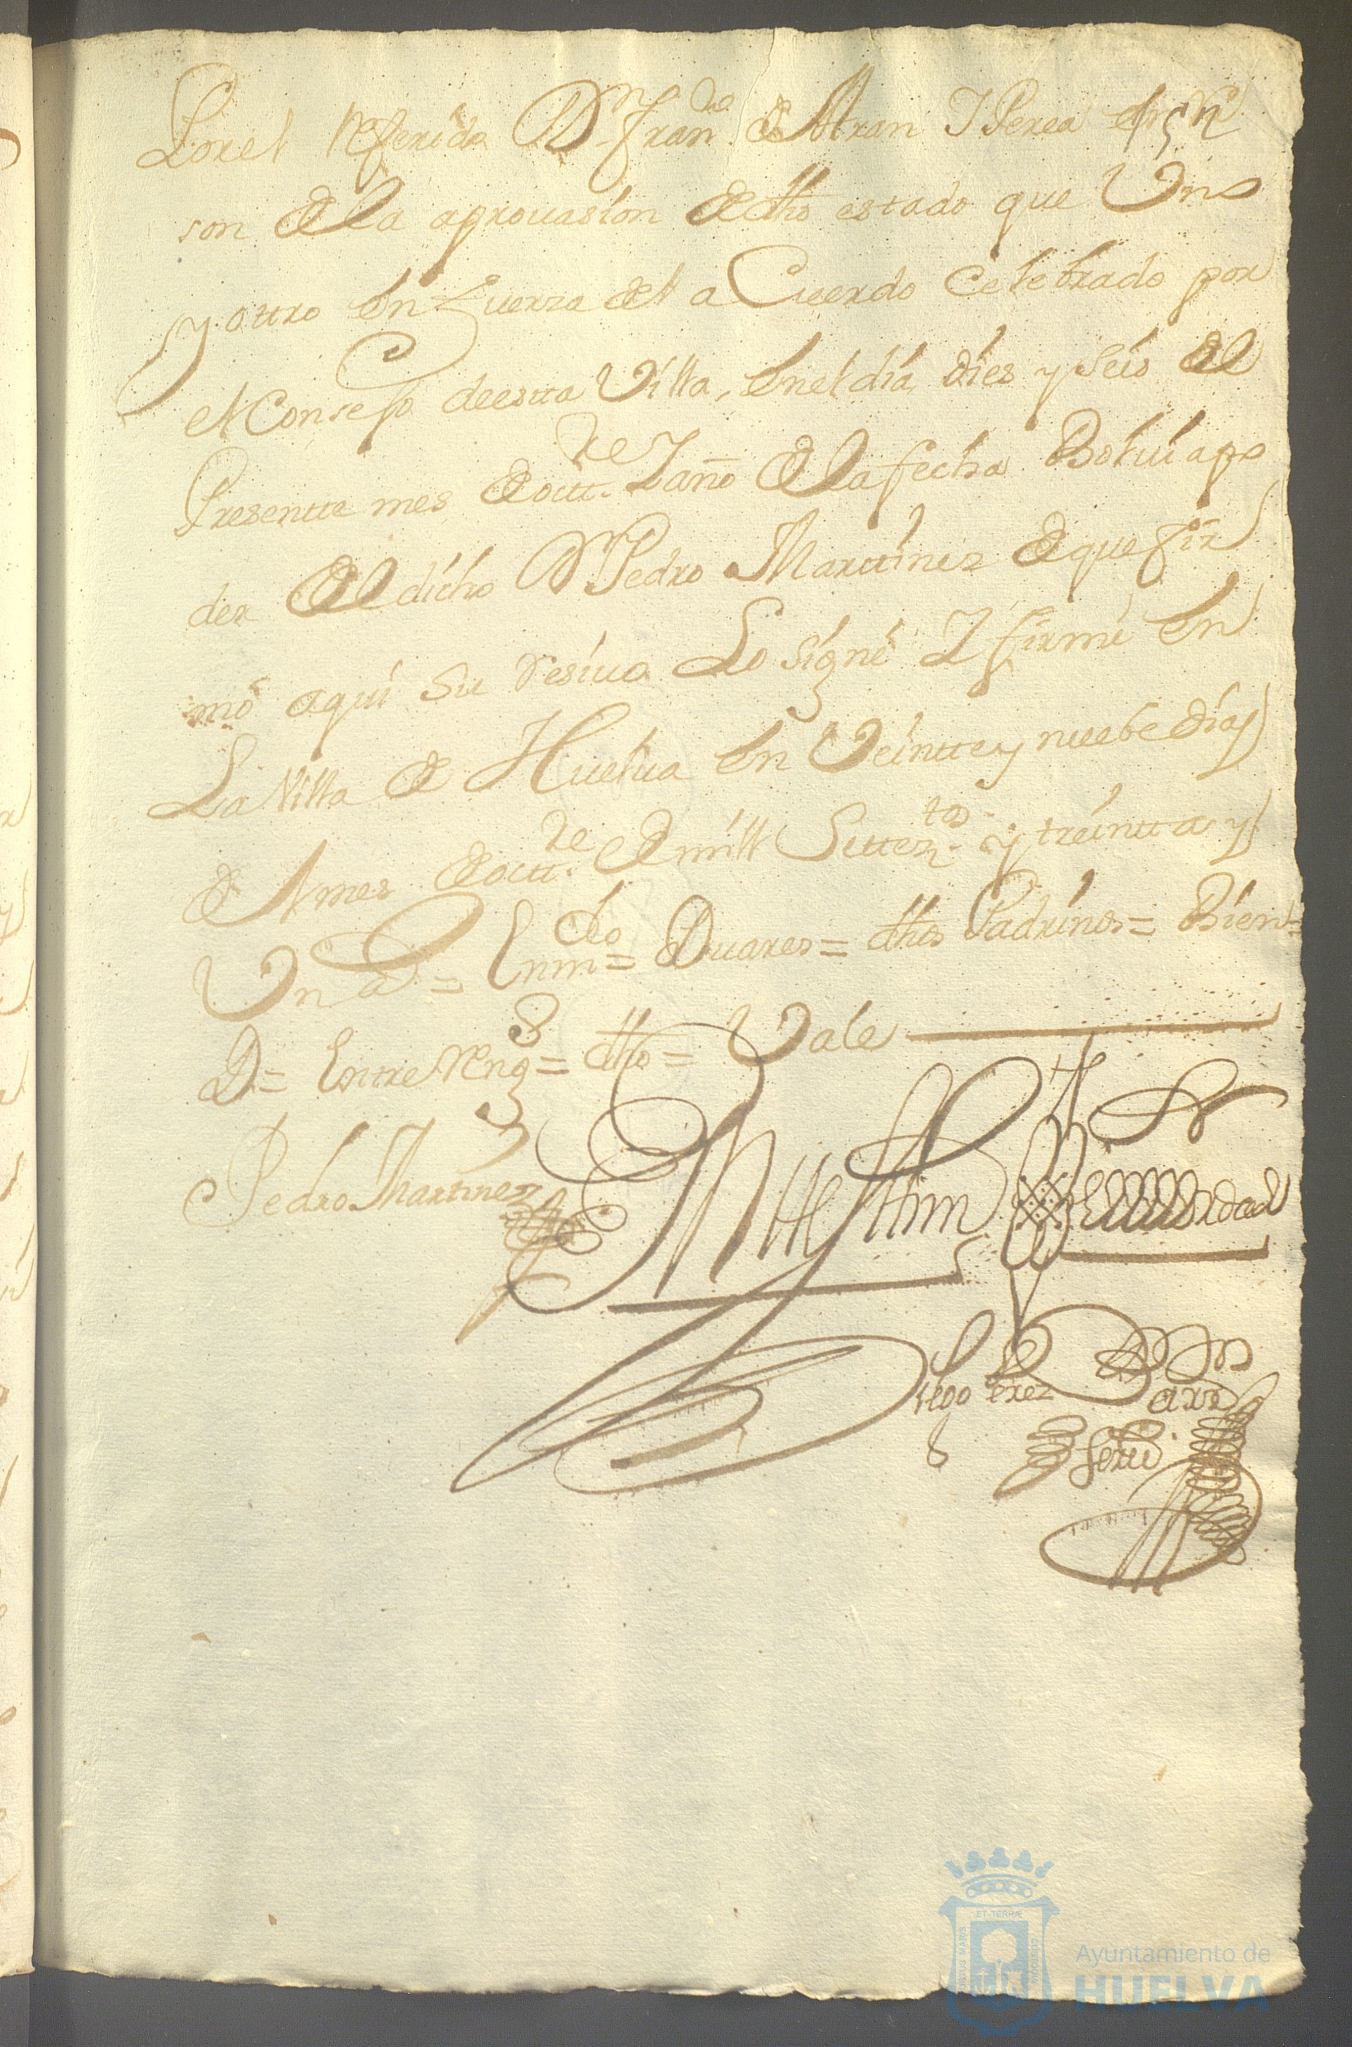 Por el referido Dn. Franco. de Altran Y Perea en
son de la aprouasion de dho estado que Uno
y ottro en fuerza del a Cuerdo Celebrado por
el Consejo de estta Villa, en el dia dies y seis del
Presentte mes de octtre. Y año de la fecha Bolui a po
der del dicho Dn. Pedro Marttinez de que fir
mó aqui su resiuo Lo signé Y firmé en
La Villa de Huelua en Veintte y nuebe dias
del mes de octtre. de mill Settezntos. y treintta y
Un a = Enmdo = Duares = dhos Padrinos = Bien =
D = Entre Reng = dho = Vale
Pedro Martinez
En testtim de Verdad
Diego Perez